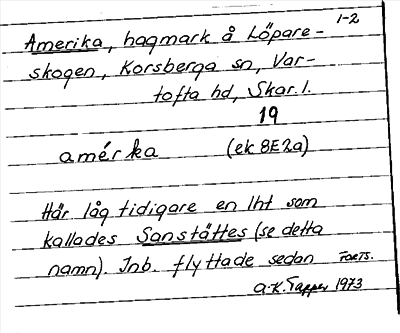 1-2
Amerika, hagmark å Löpare-
skogen, Korsberga sn, Var-
tofta hd, Skar. l.
19
amérka (ek 8E2a)
Här låg tidigare en lht som
kallades Sanstättes (se detta
namn). Inb. flyttade sedan FORTS.
A.K. Tapper 1973